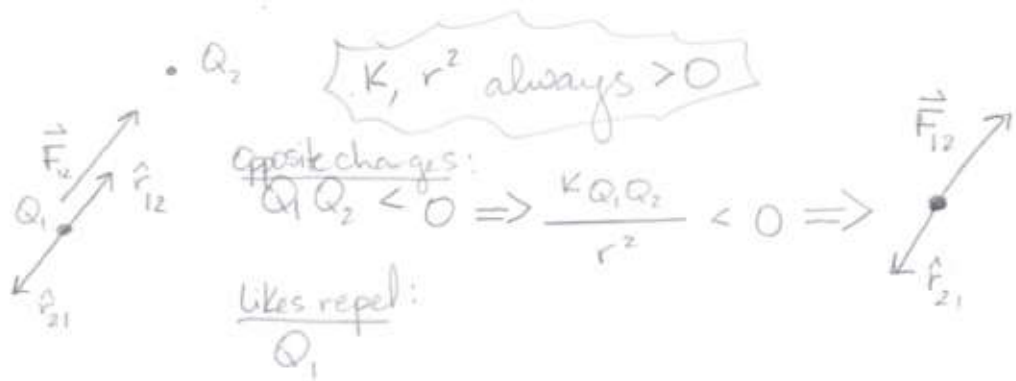 Q₂
K, r² always > 0
F⃗₁₂
r̂₁₂
Q₁
r̂₂₁
opposite charges:
Q₁ Q₂ < 0 => K Q₁ Q₂ / r² < 0 =>
F⃗₁₂
r̂₂₁
Likes repel:
Q₁